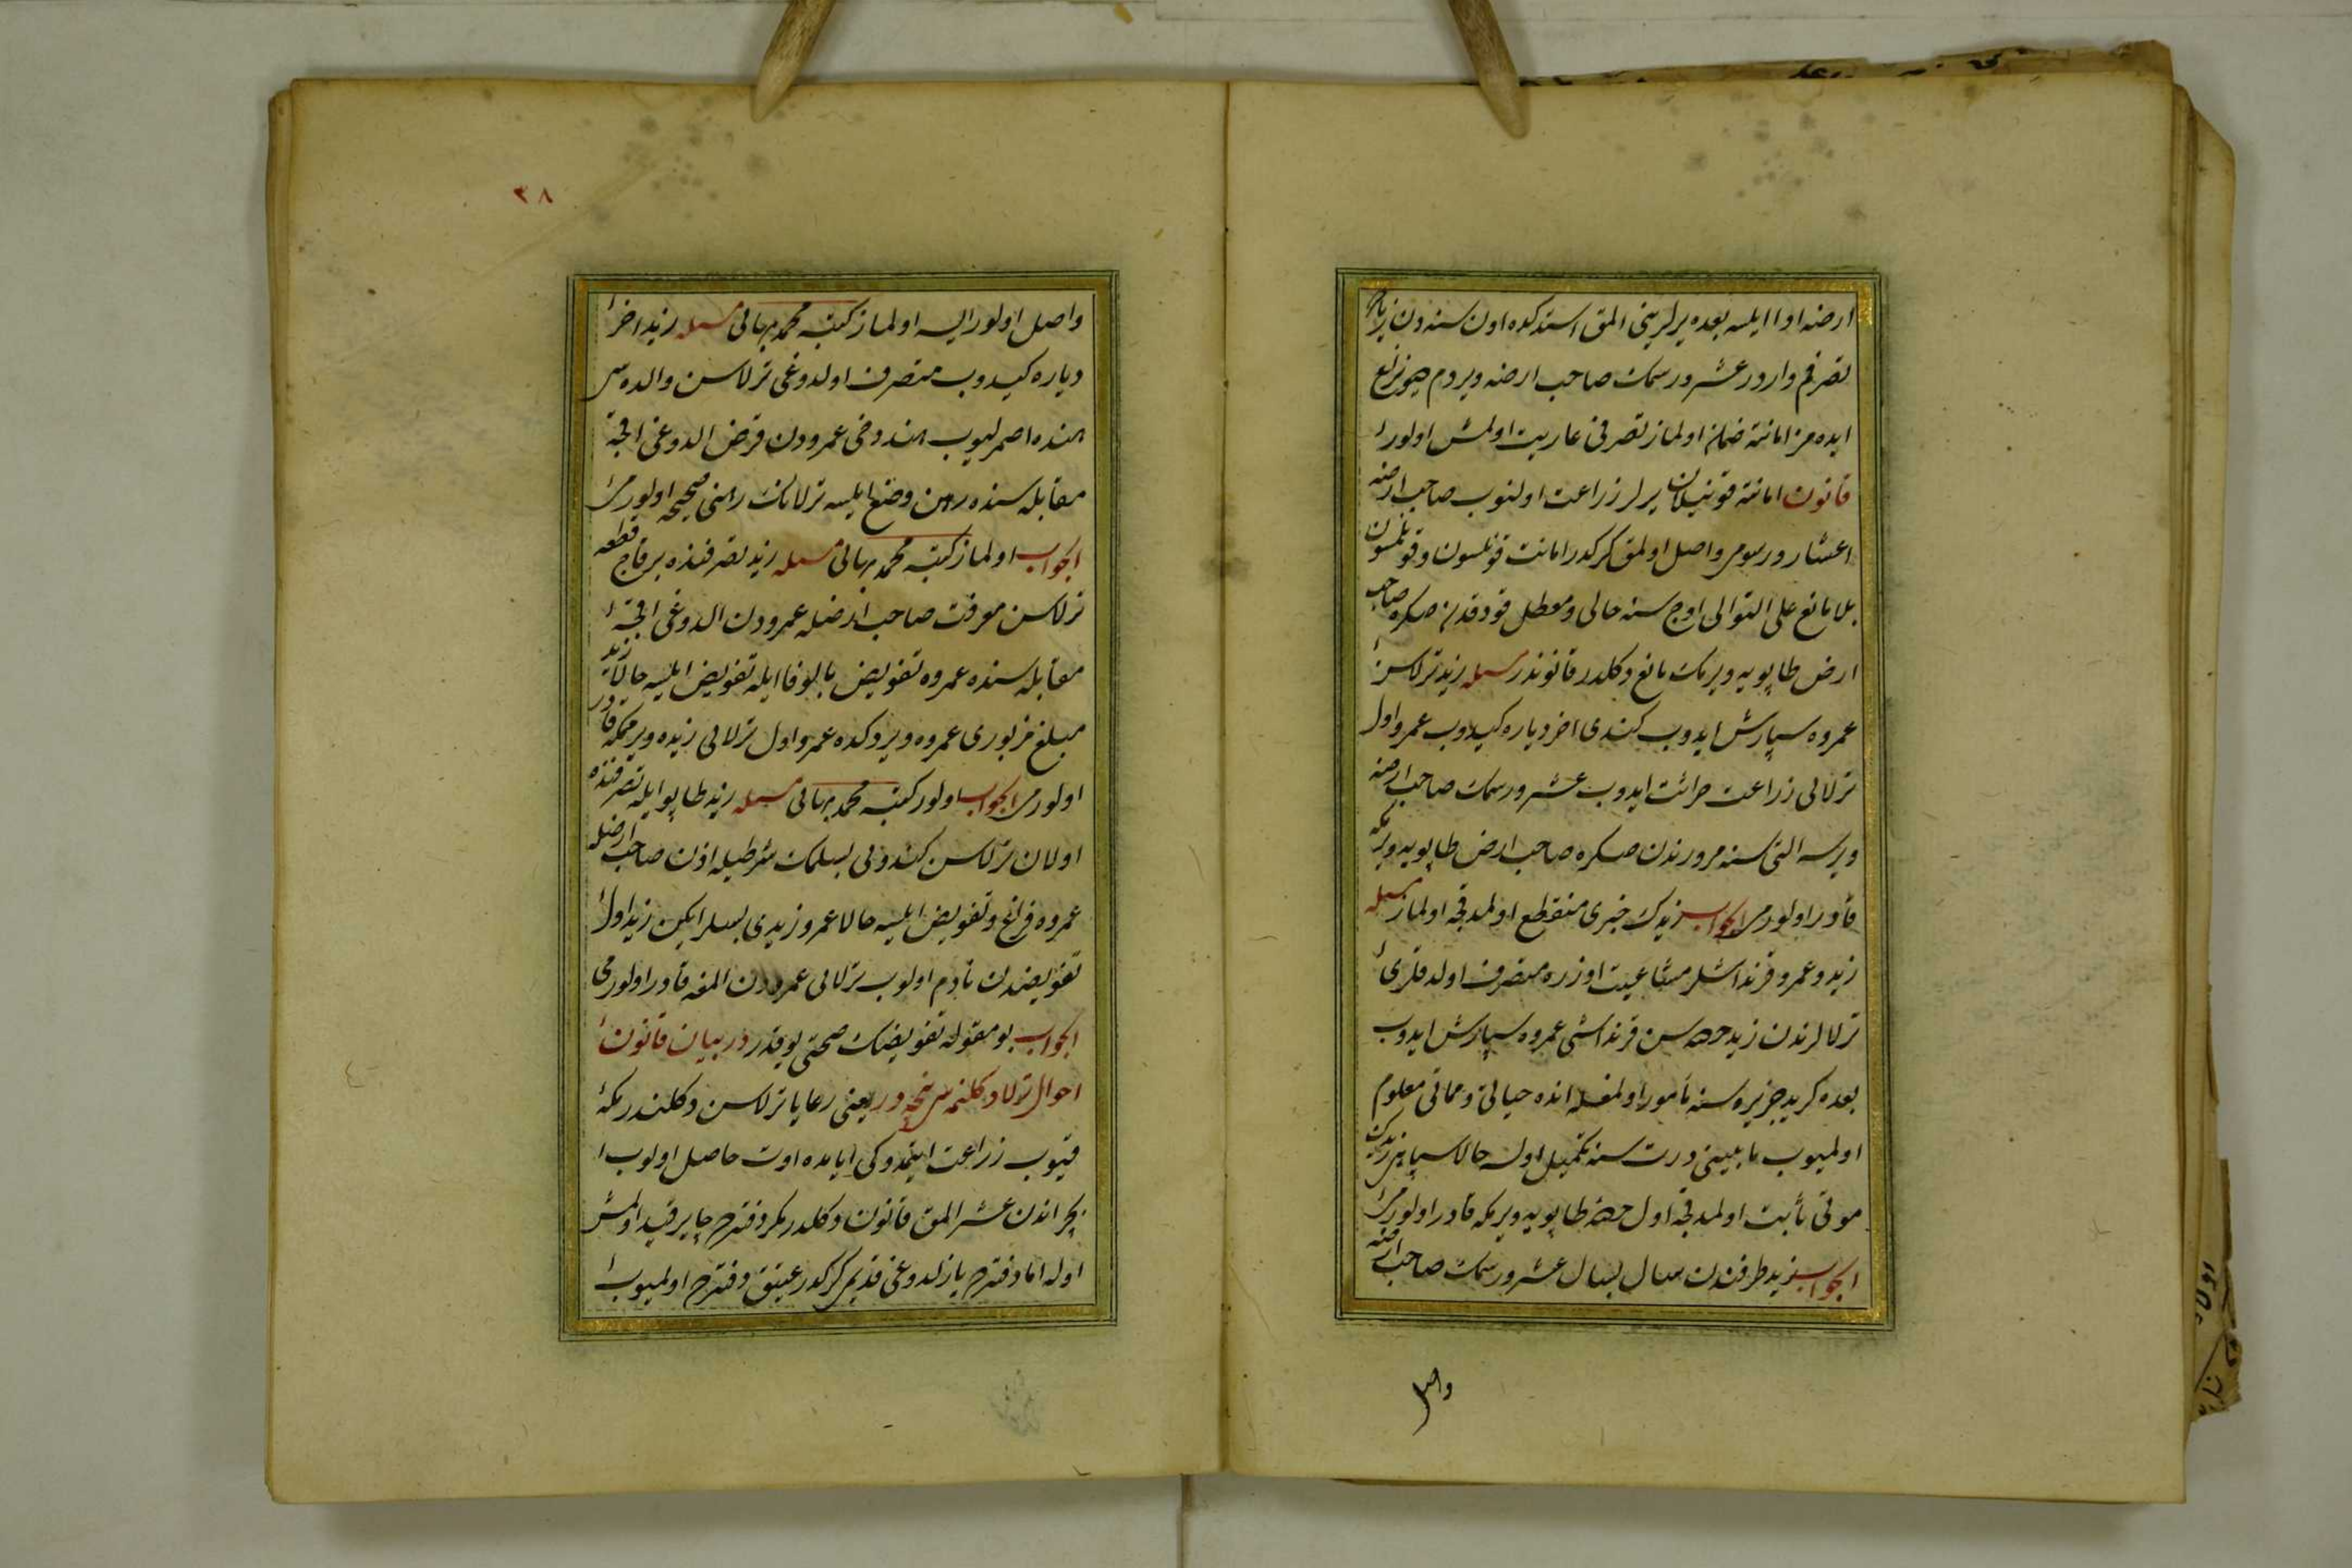 ارضه ادا ایلسه بعده یرلرینی المق استدکده اون سنه دن زیاده
تصرفم واردر عشر و رسمك صاحب ارضه ویردم دیو نزاع
ایده مز امانته ضمان اولماز تصرفی عاریت اولمش اولور
قانون امانته قونیلان یرلر زراعت اولنوب صاحب ارضه
اعشار و رسومی واصل اولمق کرکدر امانت قونلسون و قونلمسون
بلا مانع علی التوالی اوچ سنه خالی و معطل قودقدن صکره صاحب
ارض طاپویه ویرمك مانع دکلدر قانوندر مسئله زید ترلاسن
عمروه سپارش ایدوب کندی اخر دیاره کیدوب عمرو اول
ترلایی زراعت حراثت ایدوب عشر و رسمك صاحب ارضه
ویرسه التی سنه مرورندن صکره صاحب ارض طاپویه ویرمکه
قادر اولورمی الجواب زیدك خبری منقطع اولمدقجه اولماز مسئله
زید و عمرو قرنداشلر مشاعیت اوزره متصرف اولدقلری
ترلالرندن زید حصه سن قرنداشی عمروه سپارش ایدوب
بعده کرید جزیره سنه مأمور اولمغله انده حیاتی و مماتی معلوم
اولمیوب مابینی درت سنه تکمیل اولسه حالا سپاهی زیدك
موتی ثابت اولمدقجه اول حصه طاپویه ویرمکه قادر اولورمی
الجواب زید طرفندن سال بسال عشر و رسمك صاحب ارضه
واصل
٣٨
واصل اولور ایسه اولماز کتبه محمد بهائی مسئله زید اخر
دیاره کیدوب متصرف اولدوغی ترلاسن والده سی
هنده اصمرلیوب هند دخی عمرودن قرض الدوغی اقچه
مقابله سنده رهن وضع ایلسه ترلانك رهنی صحیحه اولورمی
الجواب اولماز کتبه محمد بهائی مسئله زید تصرفنده بر قاچ قطعه
ترلاسن معرفت صاحب ارضله عمرودن الدوغی اقچه
مقابله سنده عمروه تفویض بالوفا ایله تفویض ایلسه حالا زید
مبلغ مزبوری عمروه ویردکده عمرو اول ترلایی زیده ویرمکه قادر
اولورمی الجواب اولور کتبه محمد بهائی مسئله زید طاپو ایله تصرفنده
اولان ترلاسن کندویی بسلمك شرطیله اذن صاحب ارضله
عمروه فراغ و تفویض ایلسه حالا عمرو زیدی بسلر ایکن زید اول
تفویضندن نادم اولوب ترلایی عمرودن المغه قادر اولورمی
الجواب بو مقوله تفویضك صحتی یوقدر در بیان قانون
احوال ترلا دکلنمسی نیجه در یعنی رعایا ترلاسن دکلندرمکه
قیوب زراعت ایتمدوکی ایامده اوت حاصل اولوب
بچر اندن عشر المق قانون دکلدر مکر دفترده چایر قید اولمش
اوله اما دفترده یازلدوغی قدیمی کرکدر عتیق دفترده اولمیوب